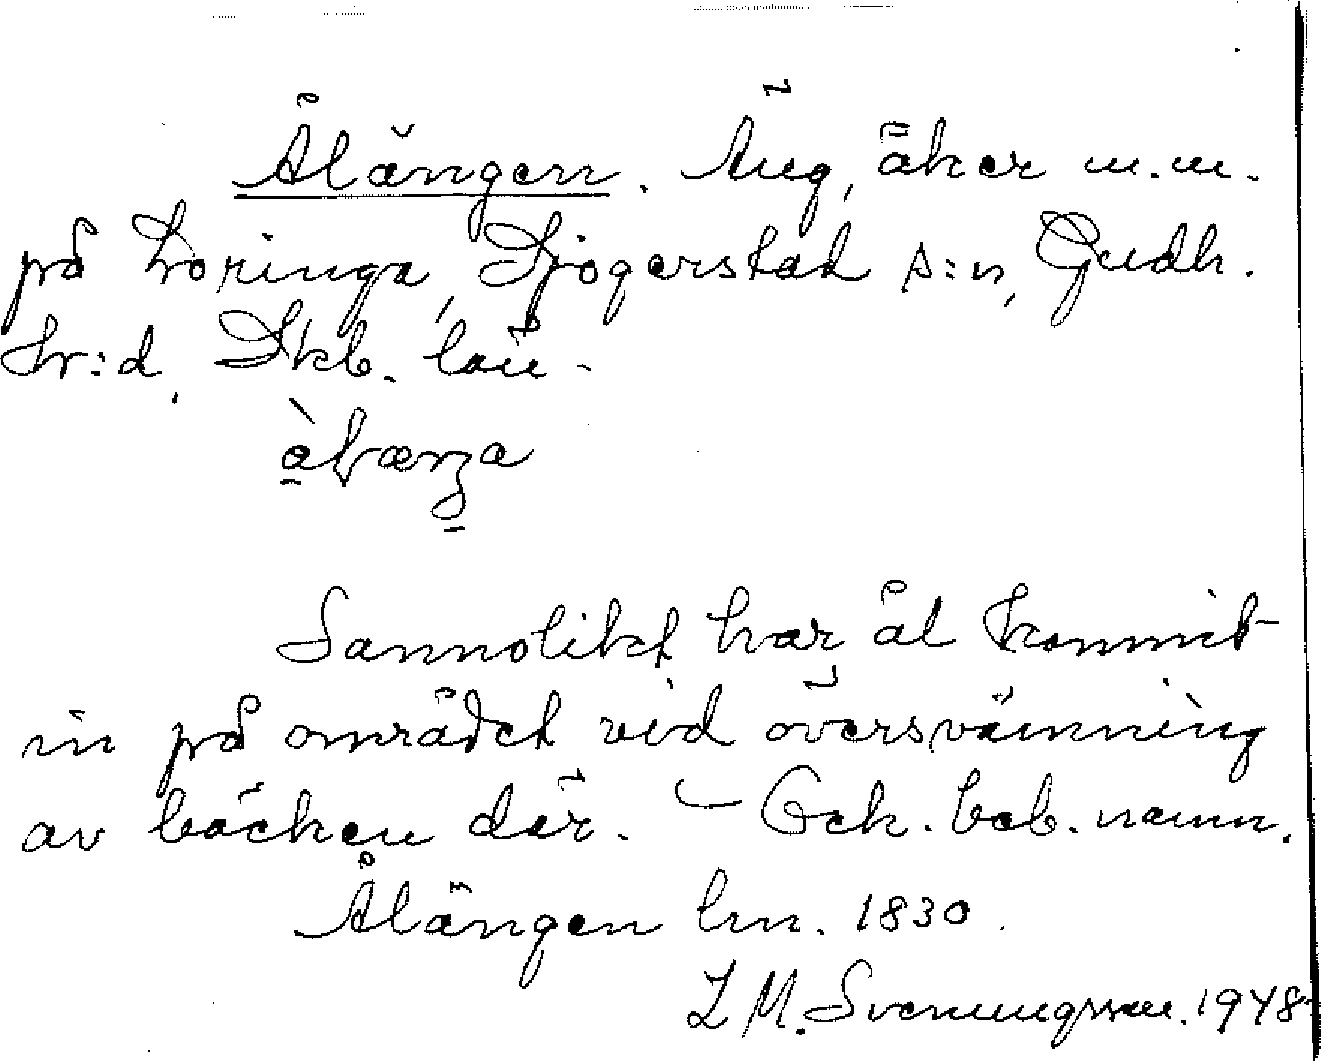 Ålängen. Äng, åker m.m.
på Loringa, Sjogerstad s:n, Gudh.
hr:d, Skb. län.
Sannolikt har ål kommit
in på området vid översvämning
av bäcken där. — Eck. beb. namn.
Ålängen lm. 1830.
L M. Svenungsson. 1948